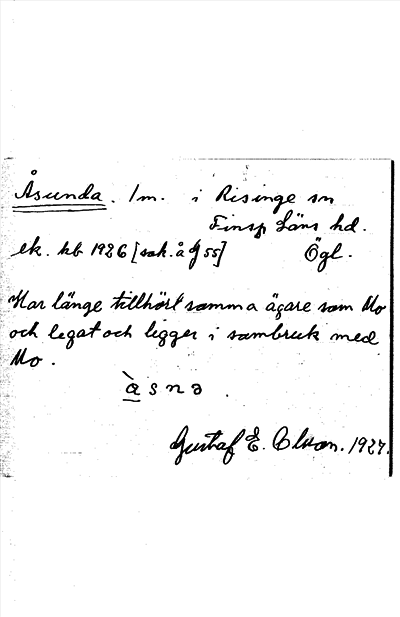 Åsunda. 1m. i Risinge sn
Finsp Läns hd.
ek. kb 1926 [sak. å J 55] Ögl.
Har länge tillhört samma ägare som Mo
och legat och ligger i sambruk med
Mo.
à s n ə .
Gustaf E. Olsson. 1927.